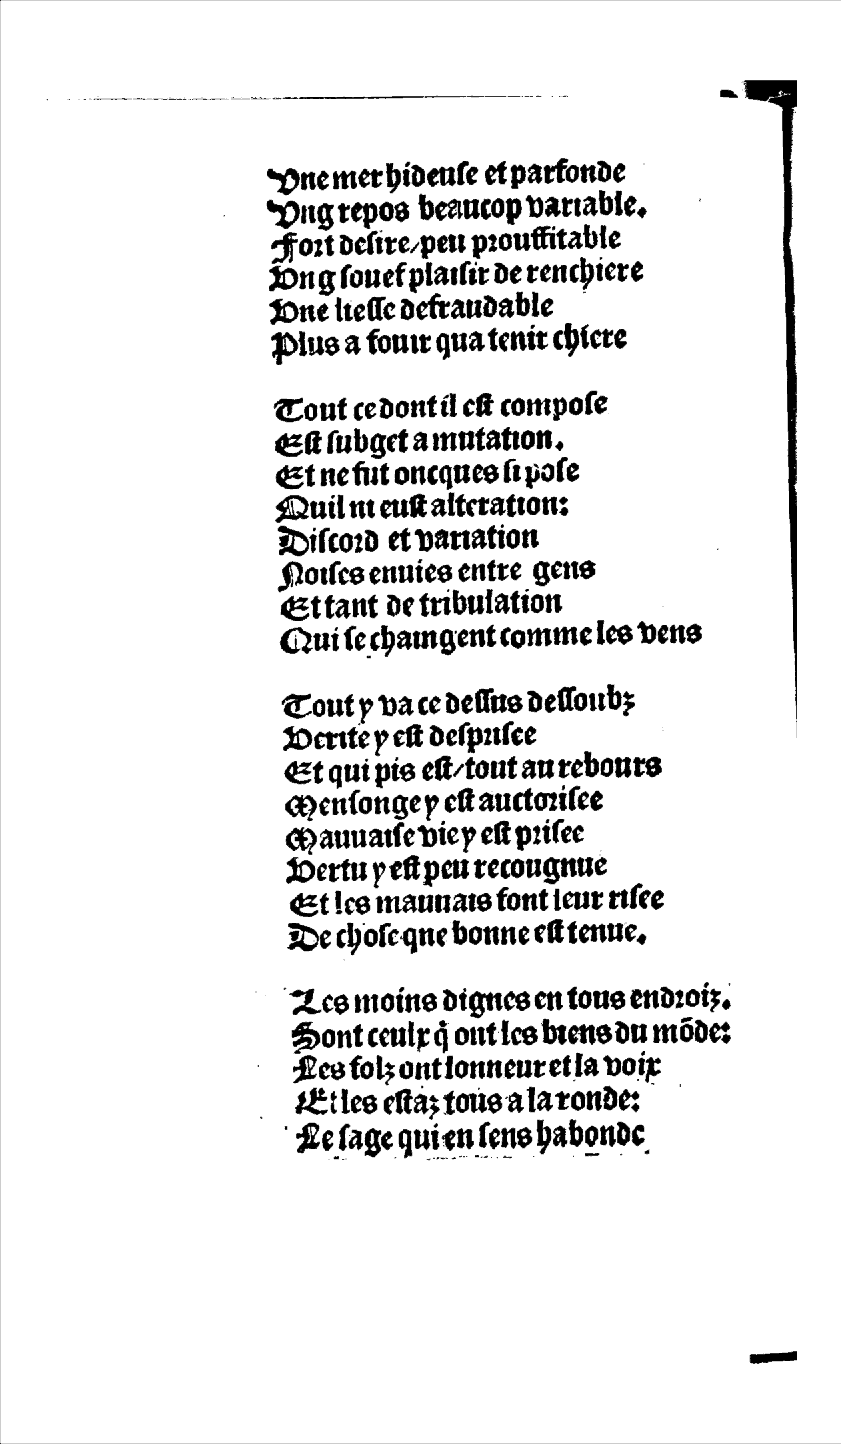 Vne mer hideuse et parfonde
Vng repos beaucop variable.
Fort desire/peu prouffitable
Vng souef plaisir de renchiere
Vne liesse defraudable
Plus a fouir qua tenir chiere
Tout ce dont il est compose
Est subget a mutation.
Et ne fut oncques si pose
Quil ni eust alteration:
Discord et variation
Noises enuies entre gens
Et tant de tribulation
Qui se chaingent comme les vens
Tout y va ce dessus dessoubz
Verite y est desprisee
Et qui pis est/tout au rebours
Mensonge y est auctorisee
Mauuaise vie y est prisee
Vertu y est peu recougnue
Et les mauuais font leur risee
De chose que bonne est tenue.
Les moins dignes en tous endroiz.
Sont ceulx q̃ ont les biens du mõde:
Les folz ont lonneur et la voix
Et les estaz tous a la ronde:
Le sage qui en sens habonde